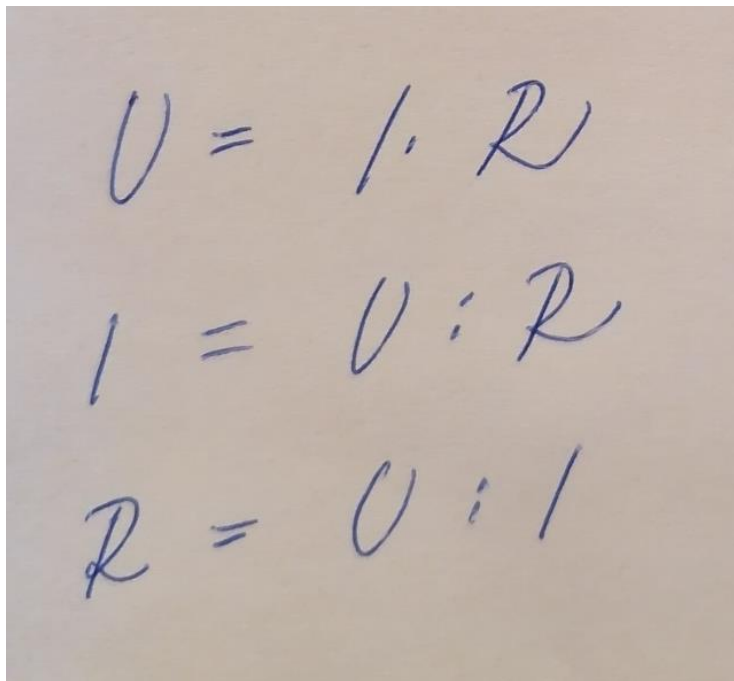 U = I · R
I = U : R
R = U : I